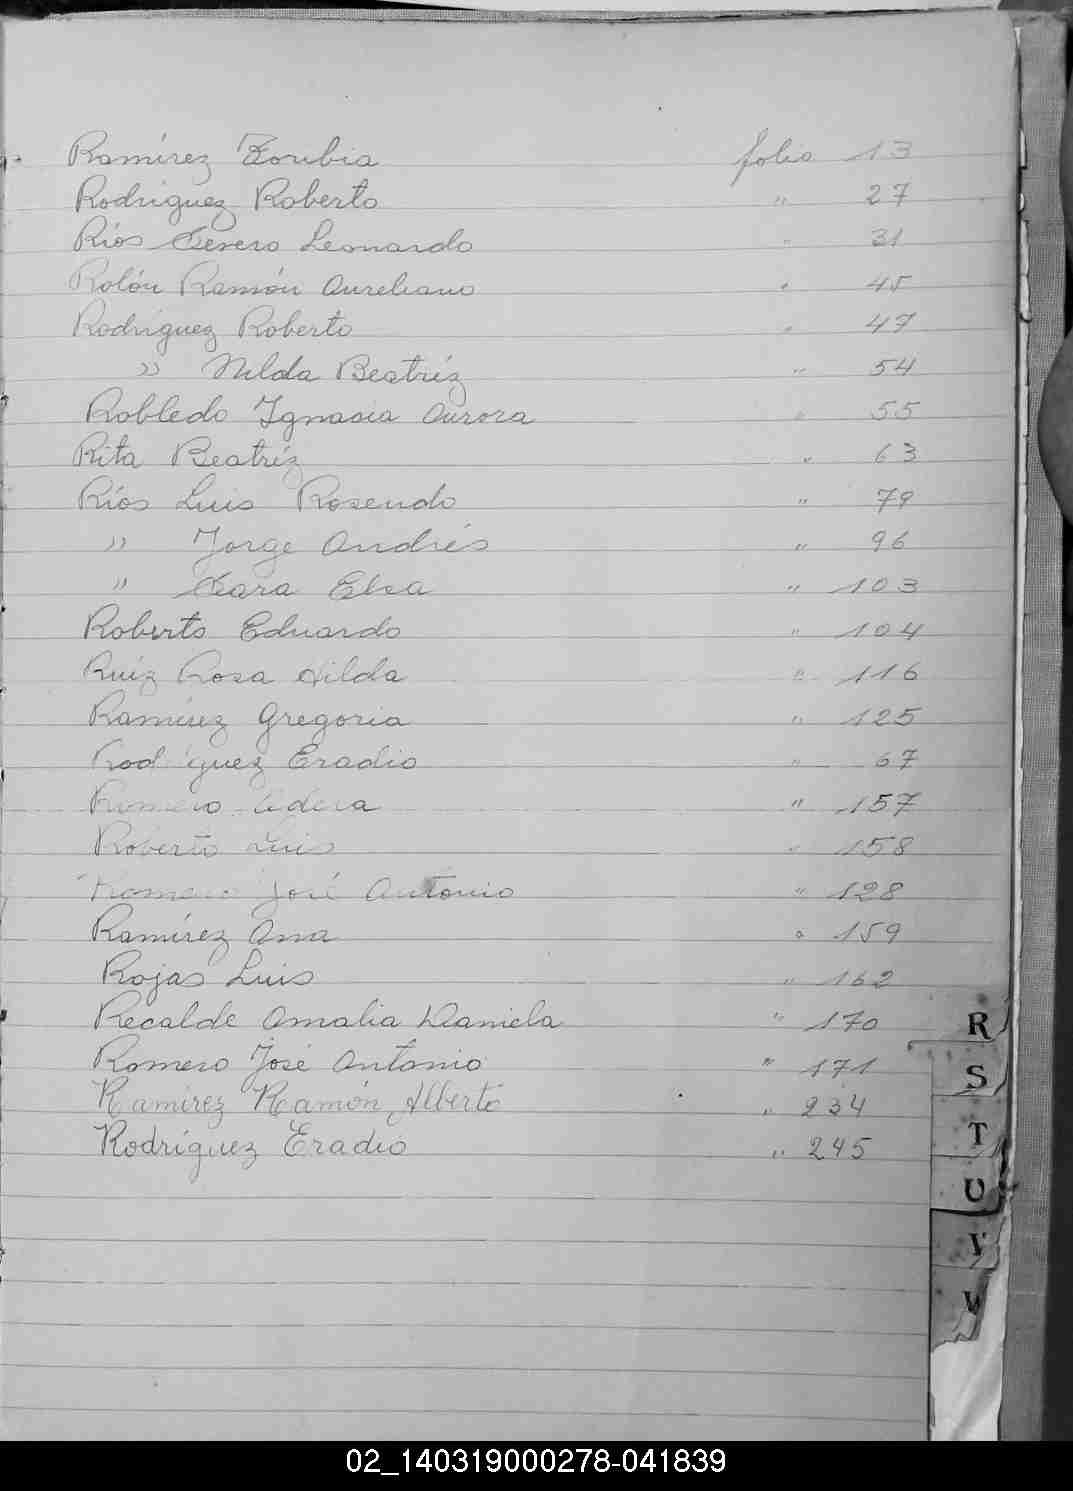 Ramírez Toribia folio 13
Rodriguez Roberto " 27
Ríos Severo Leonardo " 31
Rolón Ramón Aureliano " 45
Rodríguez Roberto " 47
" Nilda Beatríz " 54
Robledo Ignacia Aurora " 55
Rita Beatríz " 63
Ríos Luis Rosendo " 79
" Jorge Andrés " 96
" Sara Elsa " 103
Roberto Eduardo " 104
Ruíz Rosa Hilda " 116
Ramírez Gregoria " 125
Rodríguez Eradio " 67
Romero " 157
Roberto Luis " 158
Romero José Antonio " 128
Ramírez Ana " 159
Rojas Luis " 162
Recalde Amalia Daniela " 170
Romero José Antonio " 171
Ramírez Ramón Alberto " 234
Rodríguez Eradio " 245
R
S
T
U
V
W
02_140319000278-041839